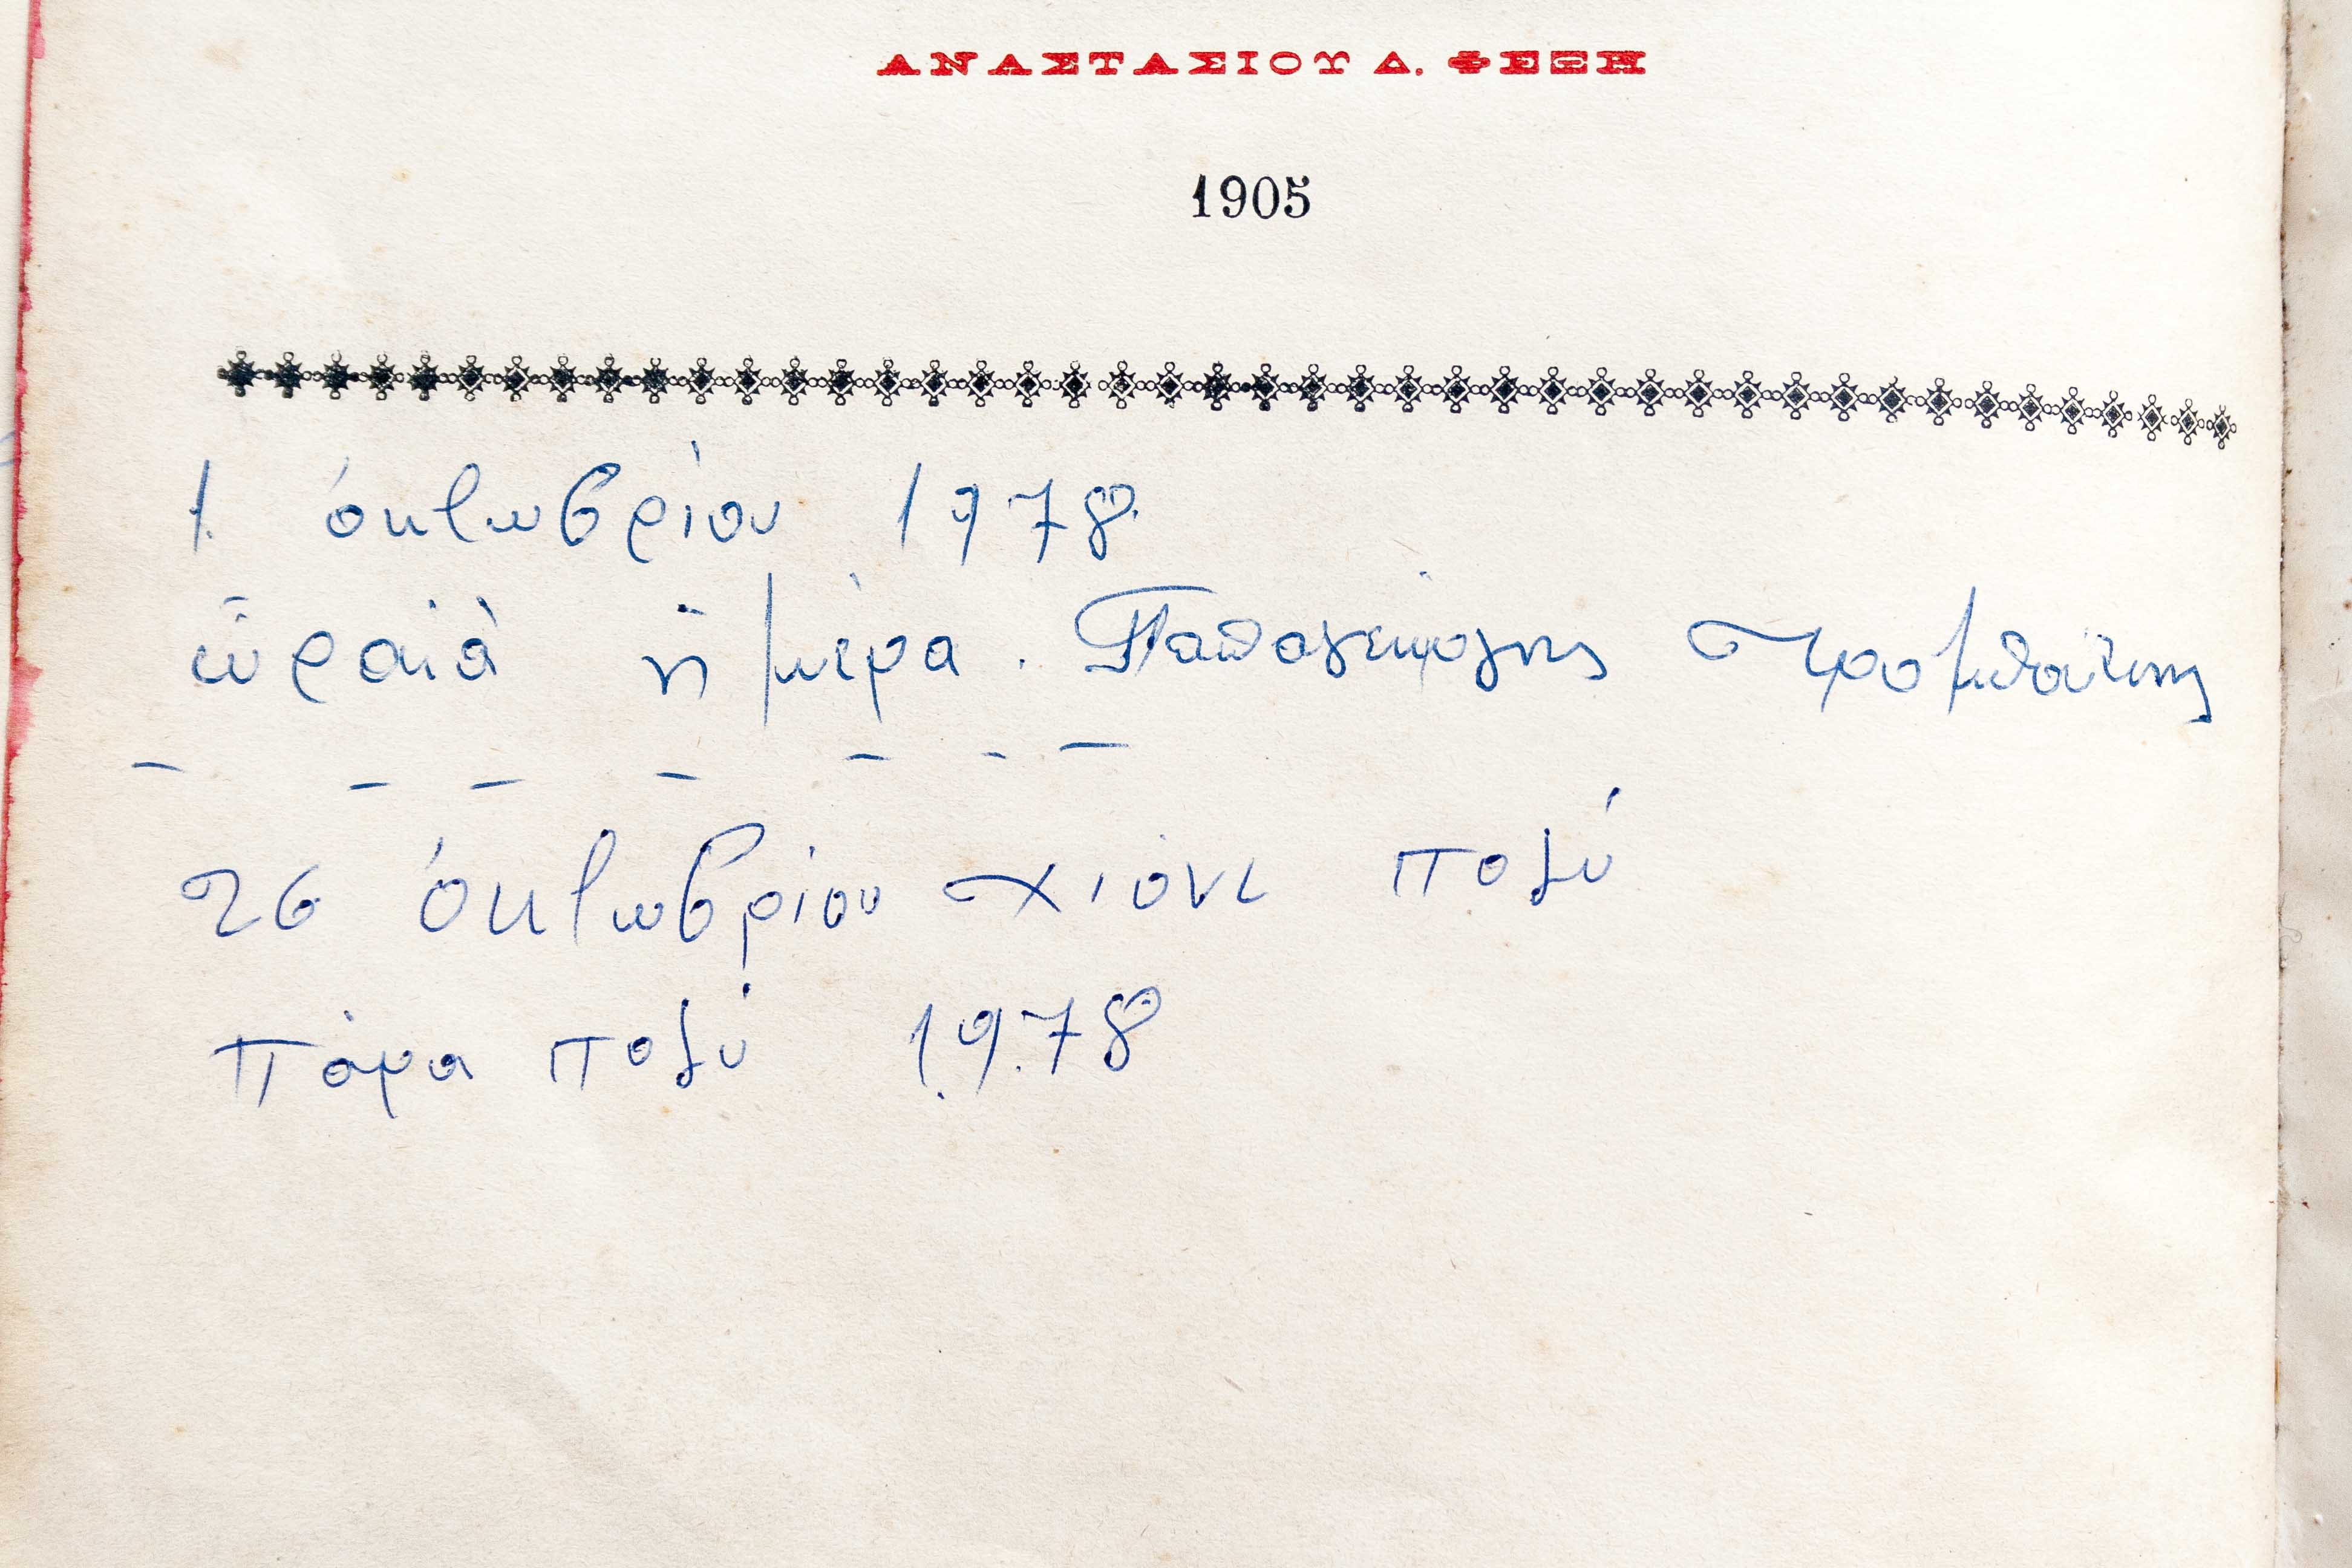 ΑΝΑΣΤΑΣΙΟΥ Δ. ΦΕΞΗ
1905
1. ὀκτωβρίου 1978
ὡραιὰ ἡ μέρα. Παπαγεώργης
26 ὀκτωβρίου χιόνι πολύ
πάρα πολύ 1978